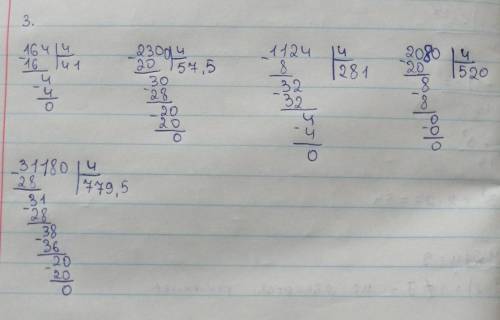 3.
164 | 4
-16 | 41
4
-4
0
2300 | 4
-20 | 57,5
30
-28
20
-20
0
1124 | 4
-8 | 281
32
-32
4
-4
0
2080 | 4
-20 | 520
8
-8
0
-0
0
31180 | 4
-28 | 779,5
31
-28
38
-36
20
-20
0